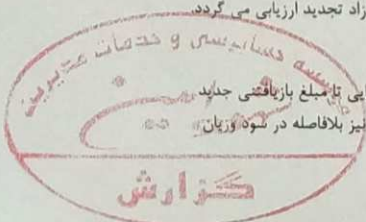 زاد تجدید ارزیابی می گردد.
موسسه حسابرسی و خدمات مدیریت
یی تا مبلغ بازیافتنی جدید
نیز بلافاصله در سود وزیان
گزارش